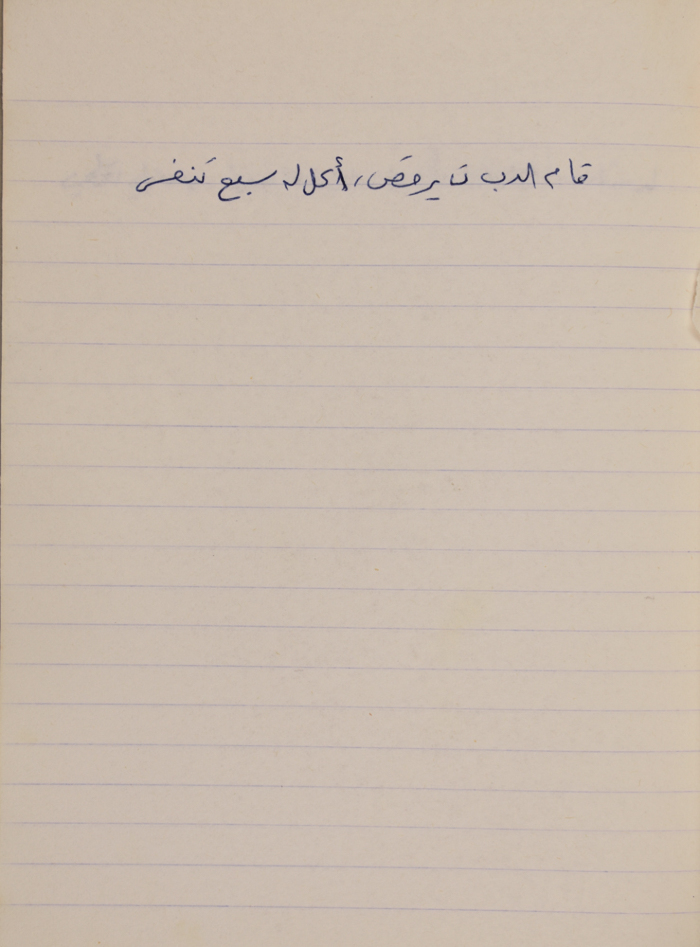 قام الدب تا يرقص، أكل له سبع تنفس